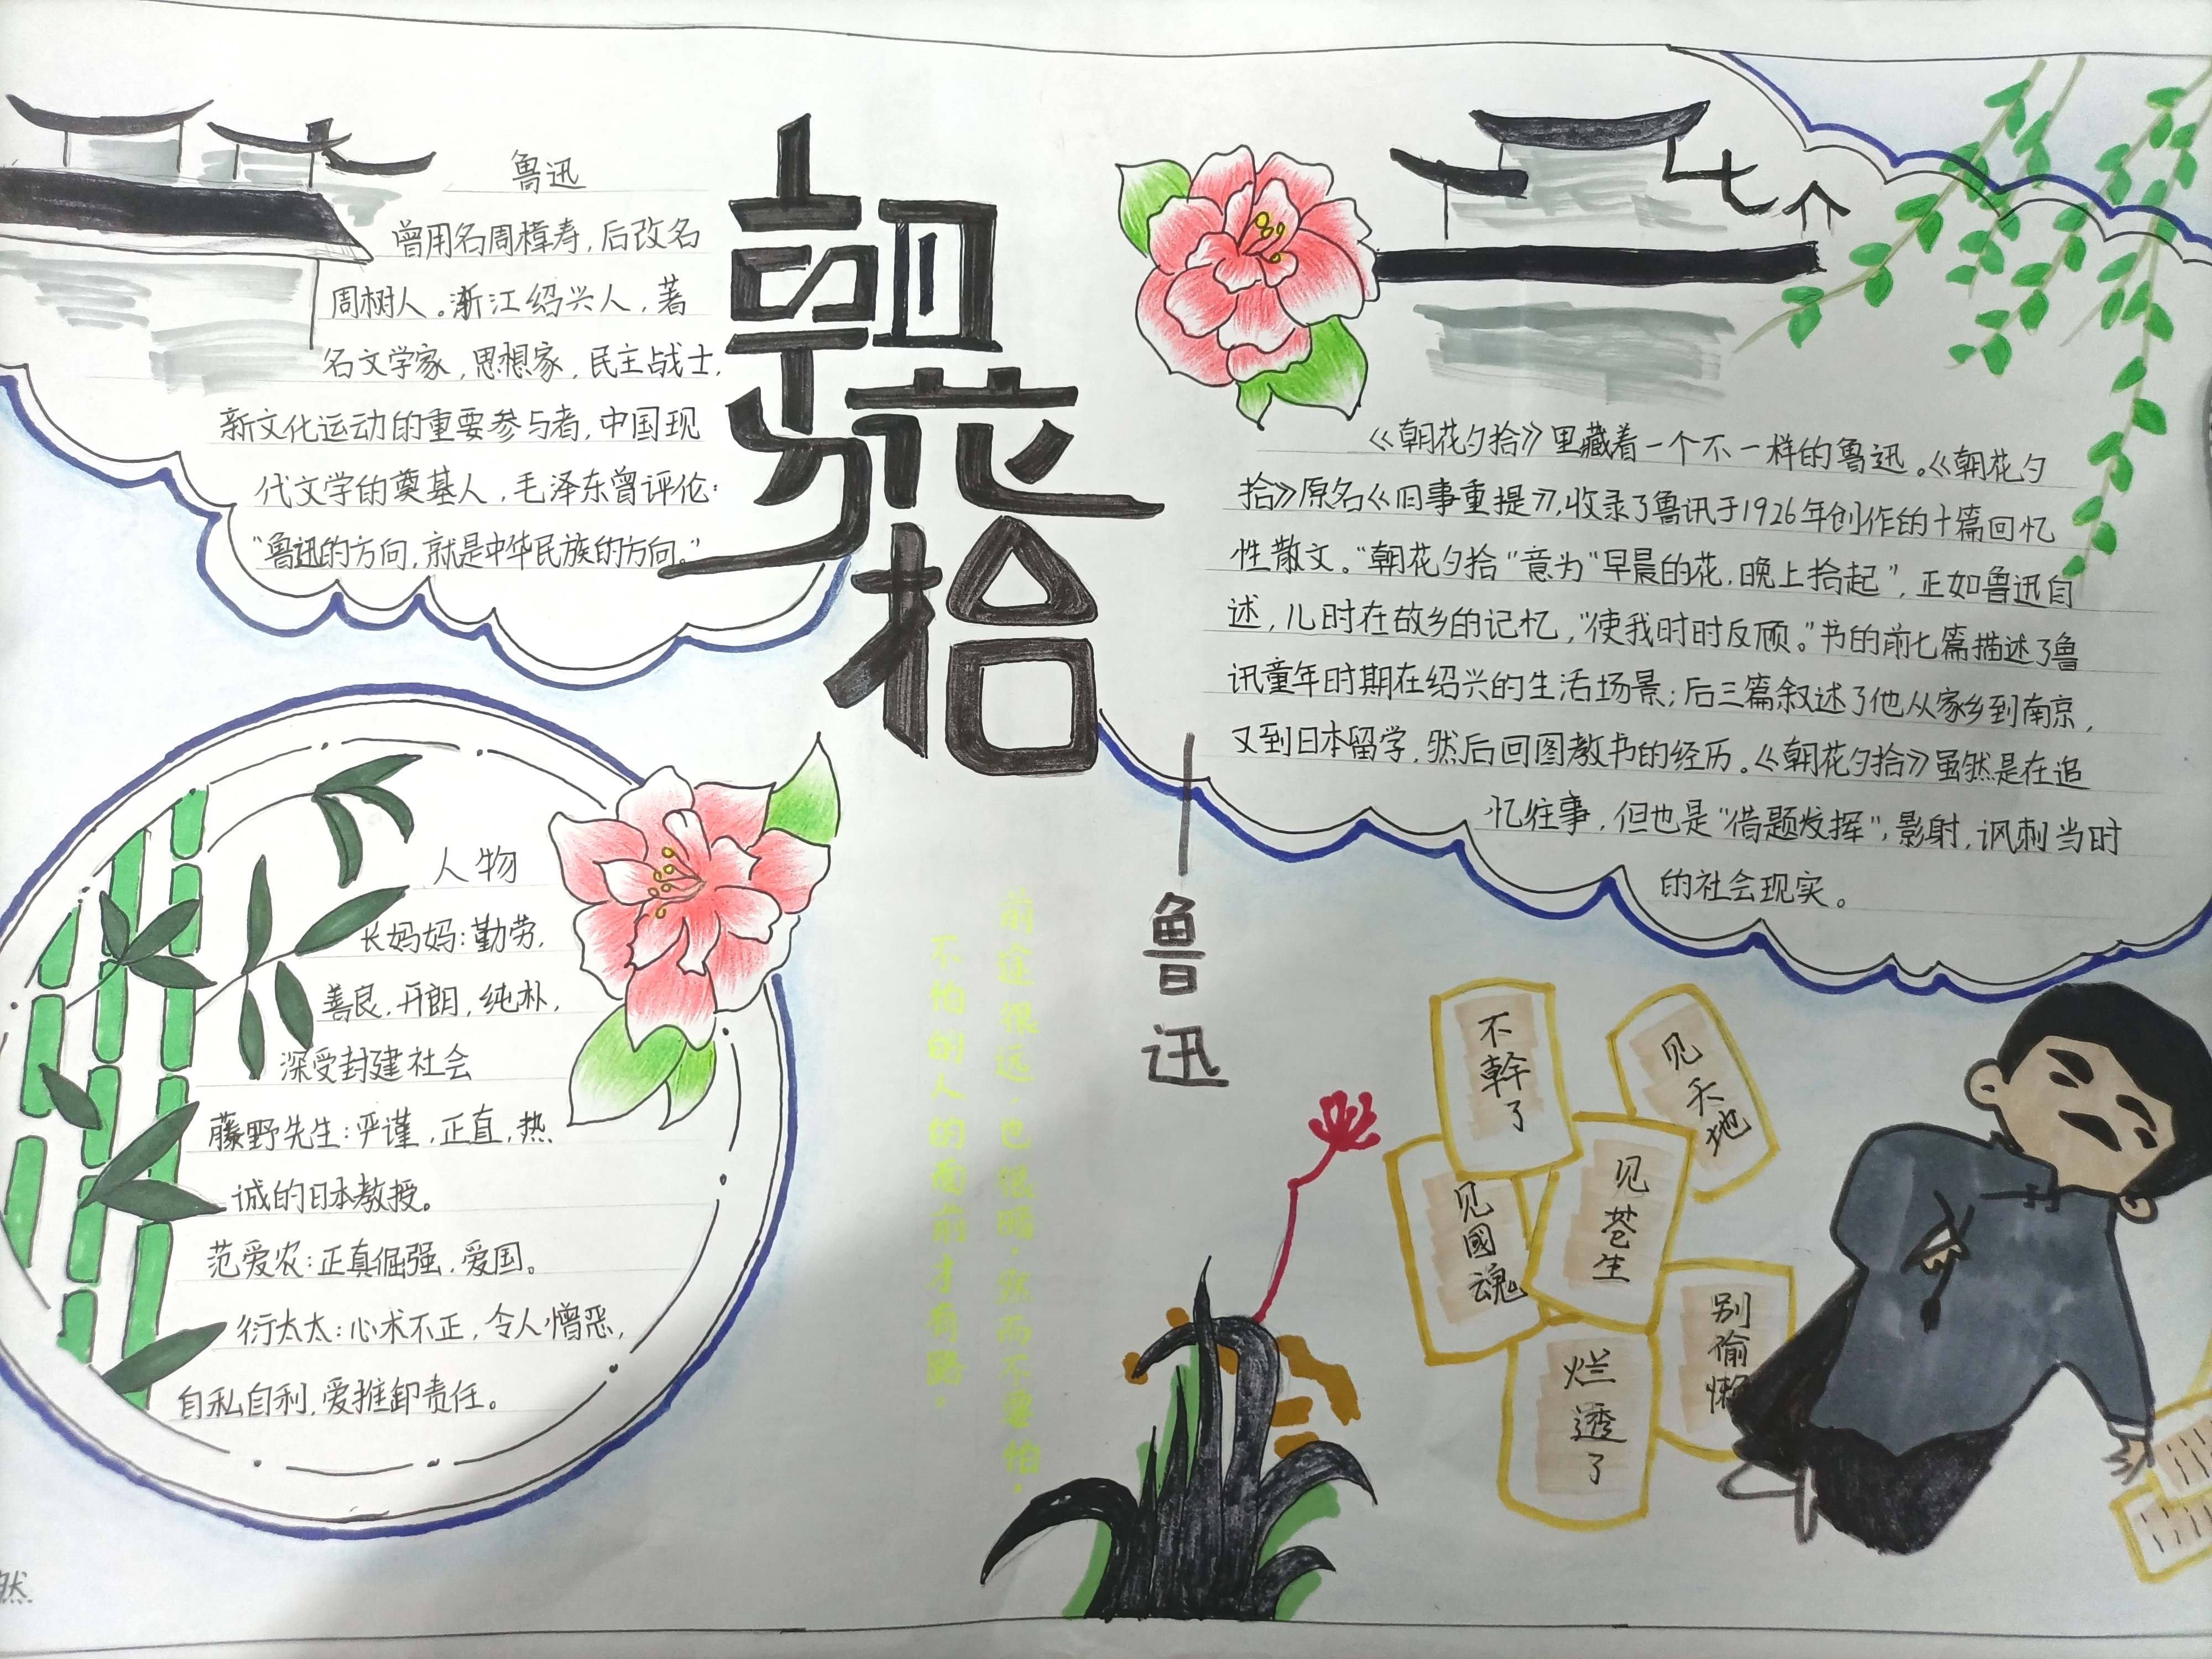 鲁迅
曾用名周樟寿,后改名
周树人。浙江绍兴人,著
名文学家,思想家,民主战士,
新文化运动的重要参与者,中国现
代文学的奠基人,毛泽东曾评伦:
“鲁迅的方向,就是中华民族的方向。”
朝花夕拾
——鲁迅
《朝花夕拾》里藏着一个不一样的鲁迅。《朝花夕
拾》原名《旧事重提》,收录了鲁讯于1926年创作的十篇回忆
性散文。“朝花夕拾“意为“早晨的花,晚上拾起”,正如鲁迅自
述,儿时在故乡的记忆,“使我时时反顾。”书的前七篇描述了鲁
讯童年时期在绍兴的生活场景;后三篇叙述了他从家乡到南京,
又到日本留学,然后回图教书的经历。《朝花夕拾》虽然是在追
忆往事,但也是“借题发挥”,影射,讽刺当时
的社会现实。
人物
长妈妈:勤劳,
善良,开朗,纯朴,
深受封建社会
藤野先生:严谨,正直,热
诚的日本教授。
范爱农:正真倔强,爱国。
衍太太:心术不正,令人憎恶,
自私自利,爱推卸责任。
前途很远,也很暗,然而不要怕,
不怕的人的面前才有路。
不幹了
见天地
见國魂
见苍生
别偷懒
烂透了
然